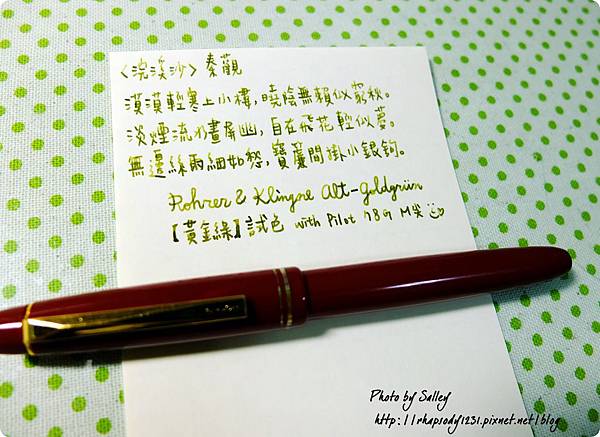 <浣溪沙> 秦觀
漠漠輕寒上小樓，曉陰無賴似窮秋。
淡煙流水畫屏幽，自在飛花輕似夢。
無邊絲雨細如愁，寶簾閒掛小銀鉤。
Rohrer & Klingne Alt-Goldgrün
【黃金綠】試色 with Pilot 78G M尖
Photo by Salley
http://rhapsody1231.pixnet.net/blog